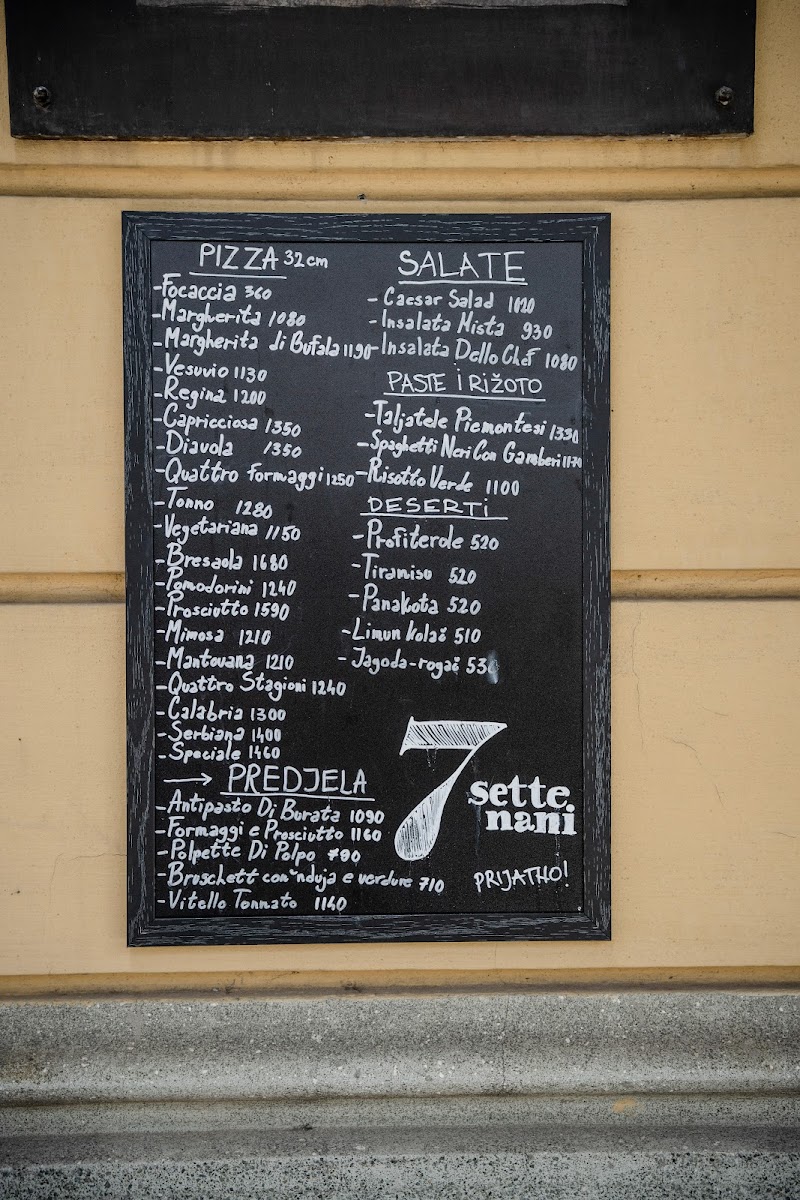 PIZZA 32cm
-Focaccia 360
-Margherita 1080
-Margherita di Bufala 1190
-Vesuvio 1130
-Regina 1200
-Capricciosa 1350
-Diavola 1350
-Quattro Formaggi 1250
-Tonno 1280
-Vegetariana 1150
-Bresaola 1680
-Pomodorini 1240
-Prosciutto 1590
-Mimosa 1210
-Mantovana 1210
-Quattro Stagioni 1240
-Calabria 1300
-Serbiana 1400
-Speciale 1460
→ PREDJELA
-Antipasto Di Burata 1090
-Formaggi e Prosciutto 1160
-Polpette Di Polpo 790
-Bruschett con 'nduja e verdure 710
-Vitello Tonnato 1140
SALATE
- Caesar Salad 1020
-Insalata Mista 930
-Insalata Dello Chef 1080
PASTE I RIŽOTO
-Taljatele Piemontesi 1330
-Spaghetti Neri Con Gamberi 1170
-Risotto Verde 1100
DESERTI
-Profiterole 520
-Tiramisu 520
-Panakota 520
-Limun kolač 510
-Jagoda-rogač 530
7 sette
nani
PRIJATNO!